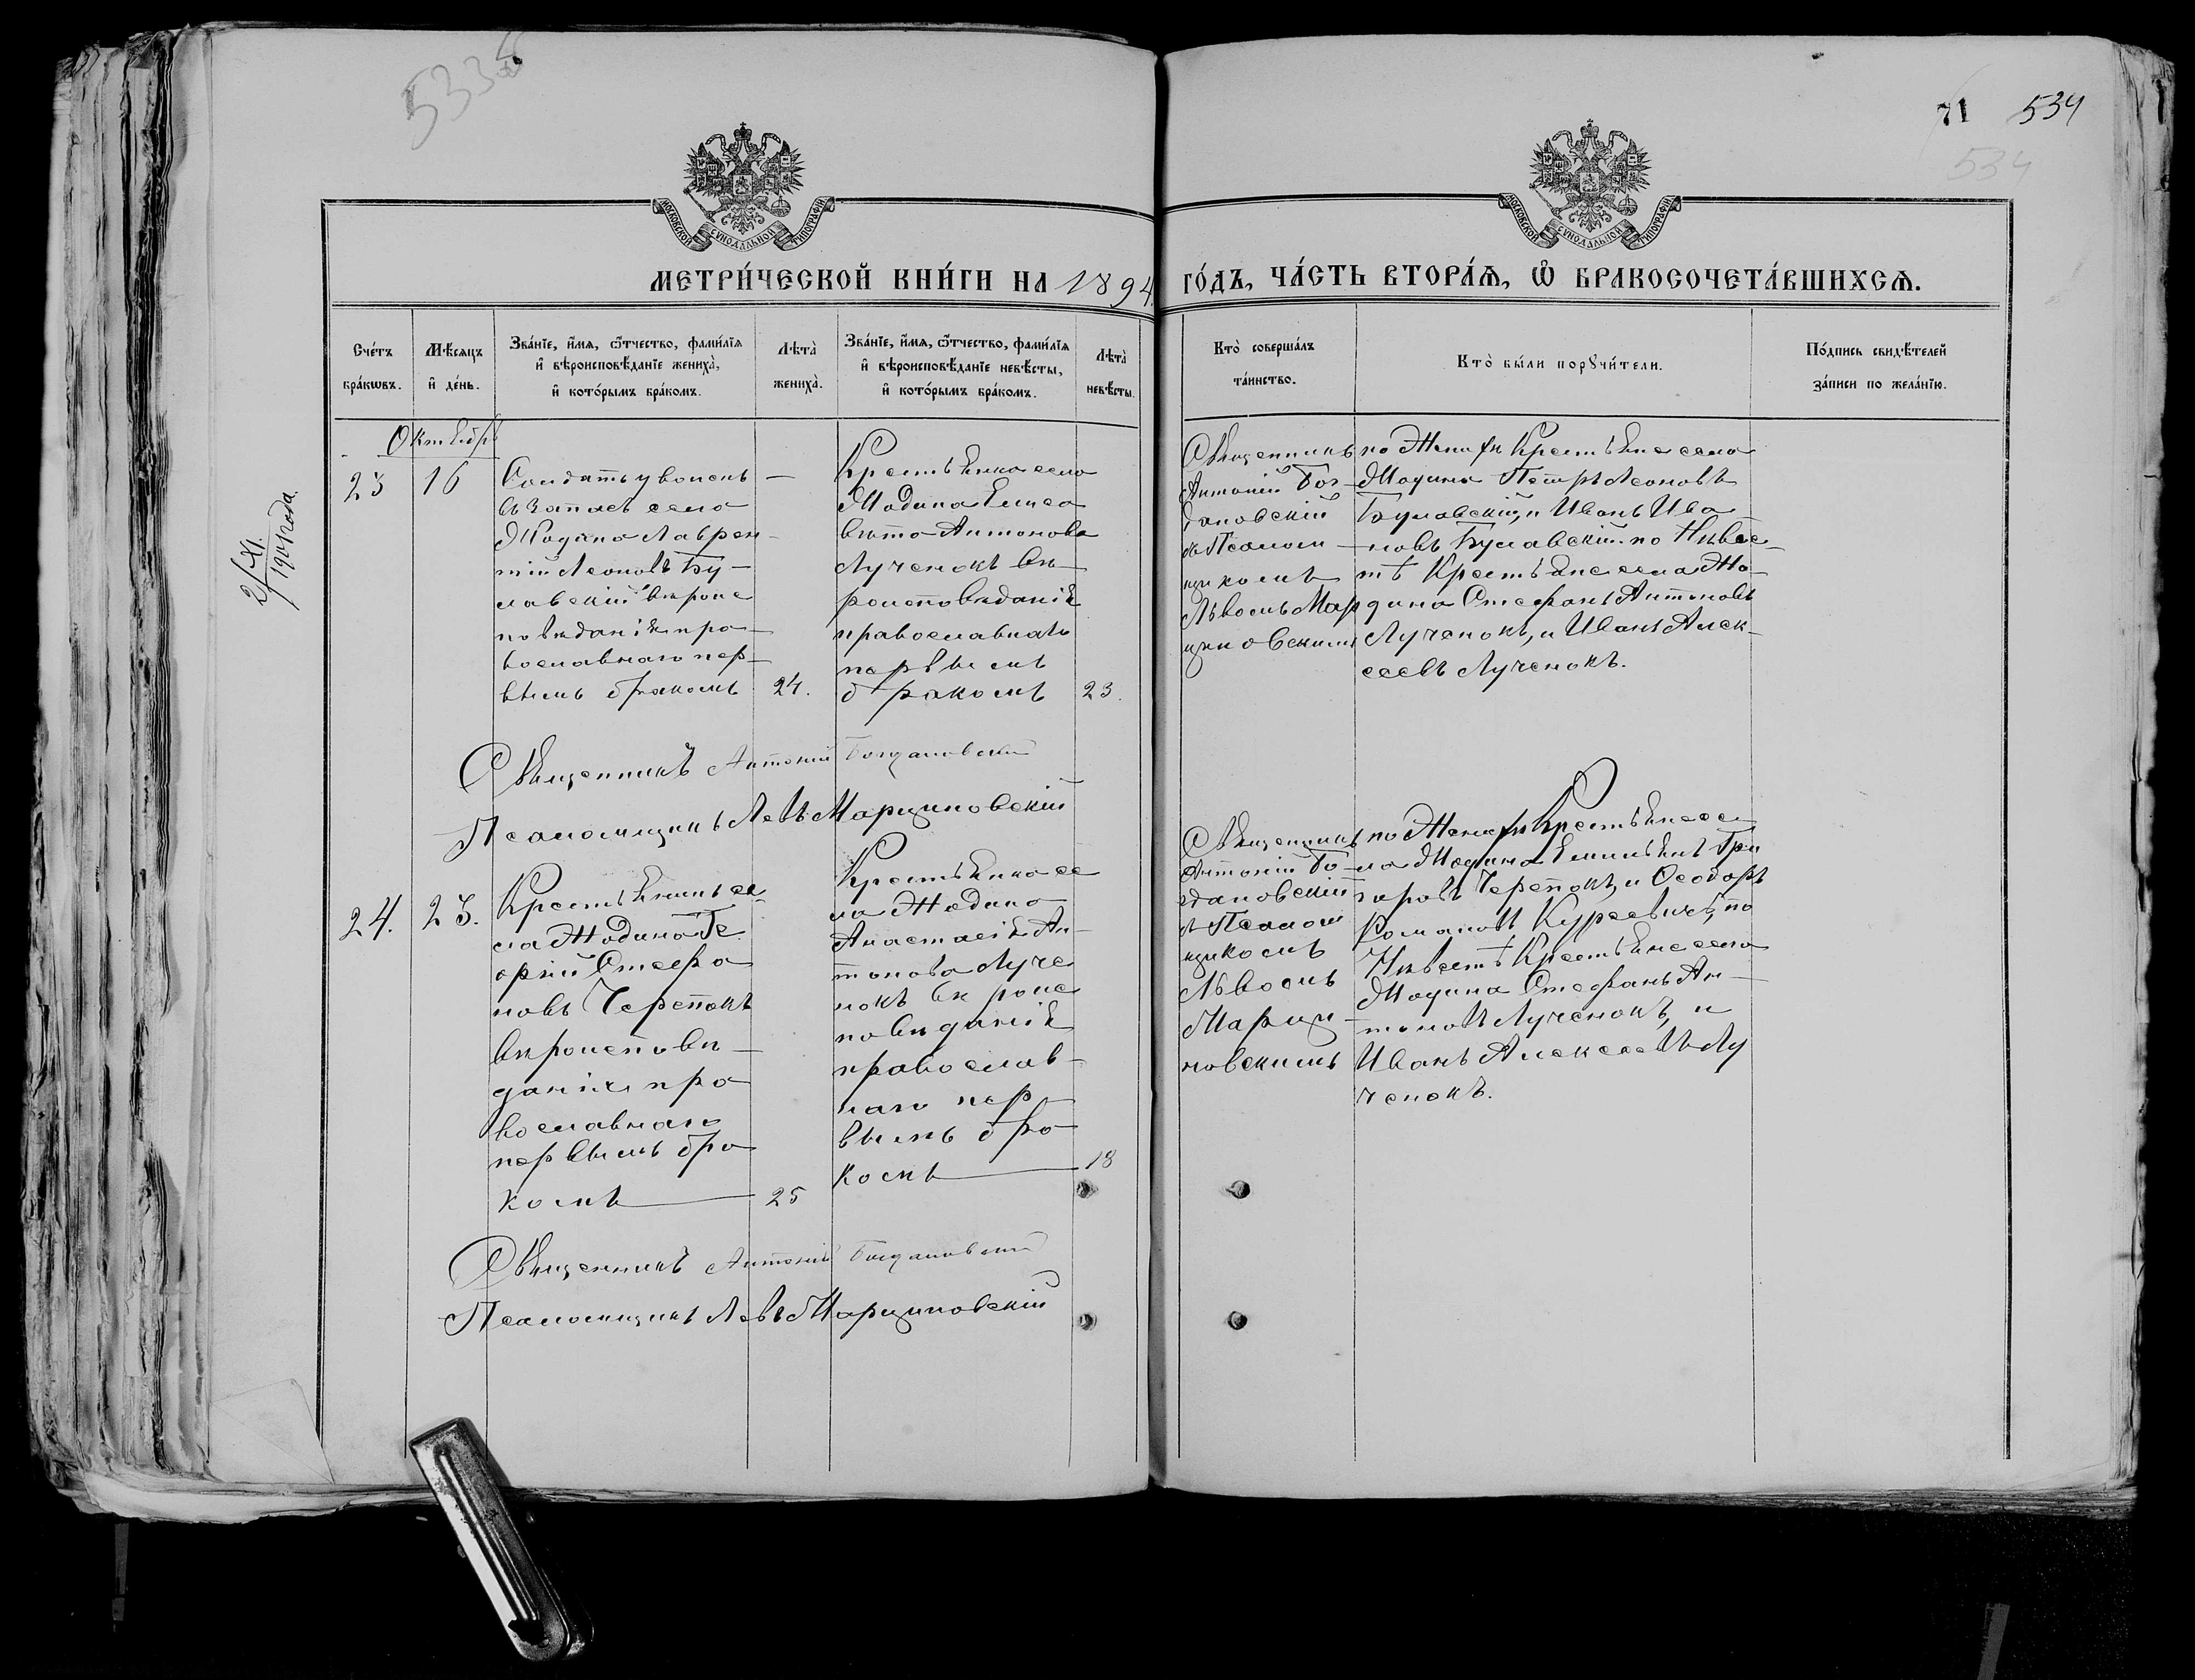 533 об
71 534
534
МОСКОВСКОЙ СѴНОДАЛЬНОЙ ТИПОГРАФІИ
МОСКОВСКОЙ СѴНОДАЛЬНОЙ ТИПОГРАФІИ
МЕТРИ́ЧЕСКОЙ КНИ́ГИ НА 1894 ГО́ДЪ, ЧА́СТЬ ВТОРА́Ѧ, Ѽ БРАКОСОЧЕТА́ВШИХСѦ.
Сче́тъ
бра́кѡвъ.
Мѣ́сяцъ
и҆ де́нь.
Зва́нїе, и҆́мѧ, ѻ҆́тчество, фами́лїѧ
и҆ вѣроисповѣ́данїе жениха̀,
и҆ кото́рымъ бра́комъ.
Лѣта̀
жениха̀.
Зва́нїе, и҆́мѧ, ѻ҆́тчество, фами́лїѧ
и҆ вѣроисповѣ́данїе невѣ́сты,
и҆ кото́рымъ бра́комъ.
Лѣта̀
невѣ́сты.
Кто̀ соверша́лъ
та́инство.
Кто̀ бы́ли порꙋчи́тели.
По́дпись свидѣ́телей
за́писи по жела́нїю.
2/XI.
1904 года.
Октябрь
23
16
Солдатъ уволен
въ запасъ села
Жодина Лаврен-
тій Леоновъ Бу-
славскій вѣроис
повѣданія пра-
вославнаго пер-
вымъ бракомъ
24.
Крестьянка села
Жодина Елиса
вѣта Антонова
Лученокъ вѣ-
роисповѣданія
православнаго
первымъ
бракомъ
23.
Священникъ
Антоній Бог-
дановскій
съ Псалом-
щикомъ
Львомъ Мар
циновскимъ
по Женихѣ Крестьяне села
Жодина Петръ Леоновъ
Буславскій, и Иванъ Ива-
новъ Буславскій по Невѣс-
тѣ Крестьяне села Жо-
дина Стефанъ Антоновъ
Лученокъ, и Иванъ Алек-
сеевъ Лученокъ.
Священникъ Антоній Богдановскій
Псаломщикъ Левъ Марциновскій
24.
23.
Крестьянинъ се-
ла Жодина Ге
оргій Стефа
новъ Черепокъ
вѣроисповѣ-
данія пра
вославнаго
первымъ бра
комъ
25
Крестьянка се
ла Жодина
Анастасія Ан-
тонова Луче
нокъ вѣроис
повѣданія
православ-
наго пер-
вымъ бра
комъ
18
Священникъ
Антоній Бо-
гдановскій
съ Псалом
щикомъ
Львомъ
Марци-
новскимъ
по Женихѣ Крестьяне се-
ла Жодина Емильянъ Гри
горовъ Черепокъ, и Ѳеодоръ
Романовъ Курсевичъ, по
Невѣстѣ Крестьяне села
Жодина Стефанъ Ан-
тоновъ Лученокъ, и
Иванъ Алексеевъ Лу
ченокъ.
Священникъ Антоній Богдановскій
Псаломщикъ Левъ Марциновскій